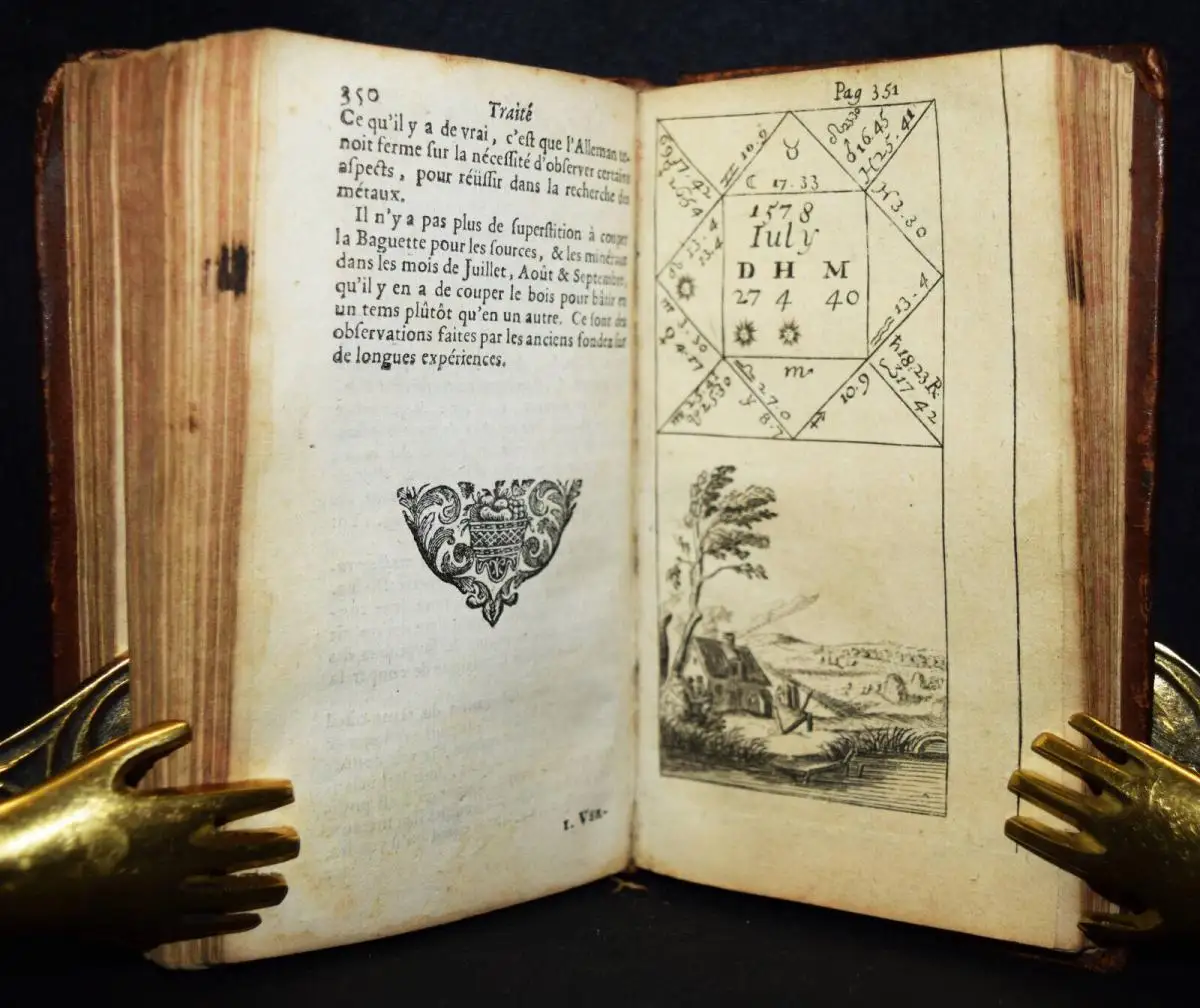 350
Traité
Ce qu'il y a de vrai, c'eſt que l'Alleman te-
noit ferme ſur la néceſſité d'obſerver certains
aſpects, pour réüſſir dans la recherche des
métaux.
Il n'y a pas plus de ſuperſtition à couper
la Baguette pour les ſources, & les minéraux
dans les mois de Juillet, Août & Septembre,
qu'il y en a de couper le bois pour bâtir en
un tems plûtôt qu'en un autre. Ce ſont des
obſervations faites par les anciens fondez ſur
de longues expériences.
1. VER-
Pag 351
♊ 10.9
♉
☾ 17.33
♌ 2330
♂ 16.45
♓ 25.41
♓ 3.30
♋ 17.42
1578
Iuly
D H M
27 4 40
♌ 13.4
13.4
☉
♒ 13.4
♍ 3.30
♀ 4.17
♄ 18.23 ℞
♑ 17 42
♍ 25.41
♎ 27.0
8.7
♏
♐ 10.9